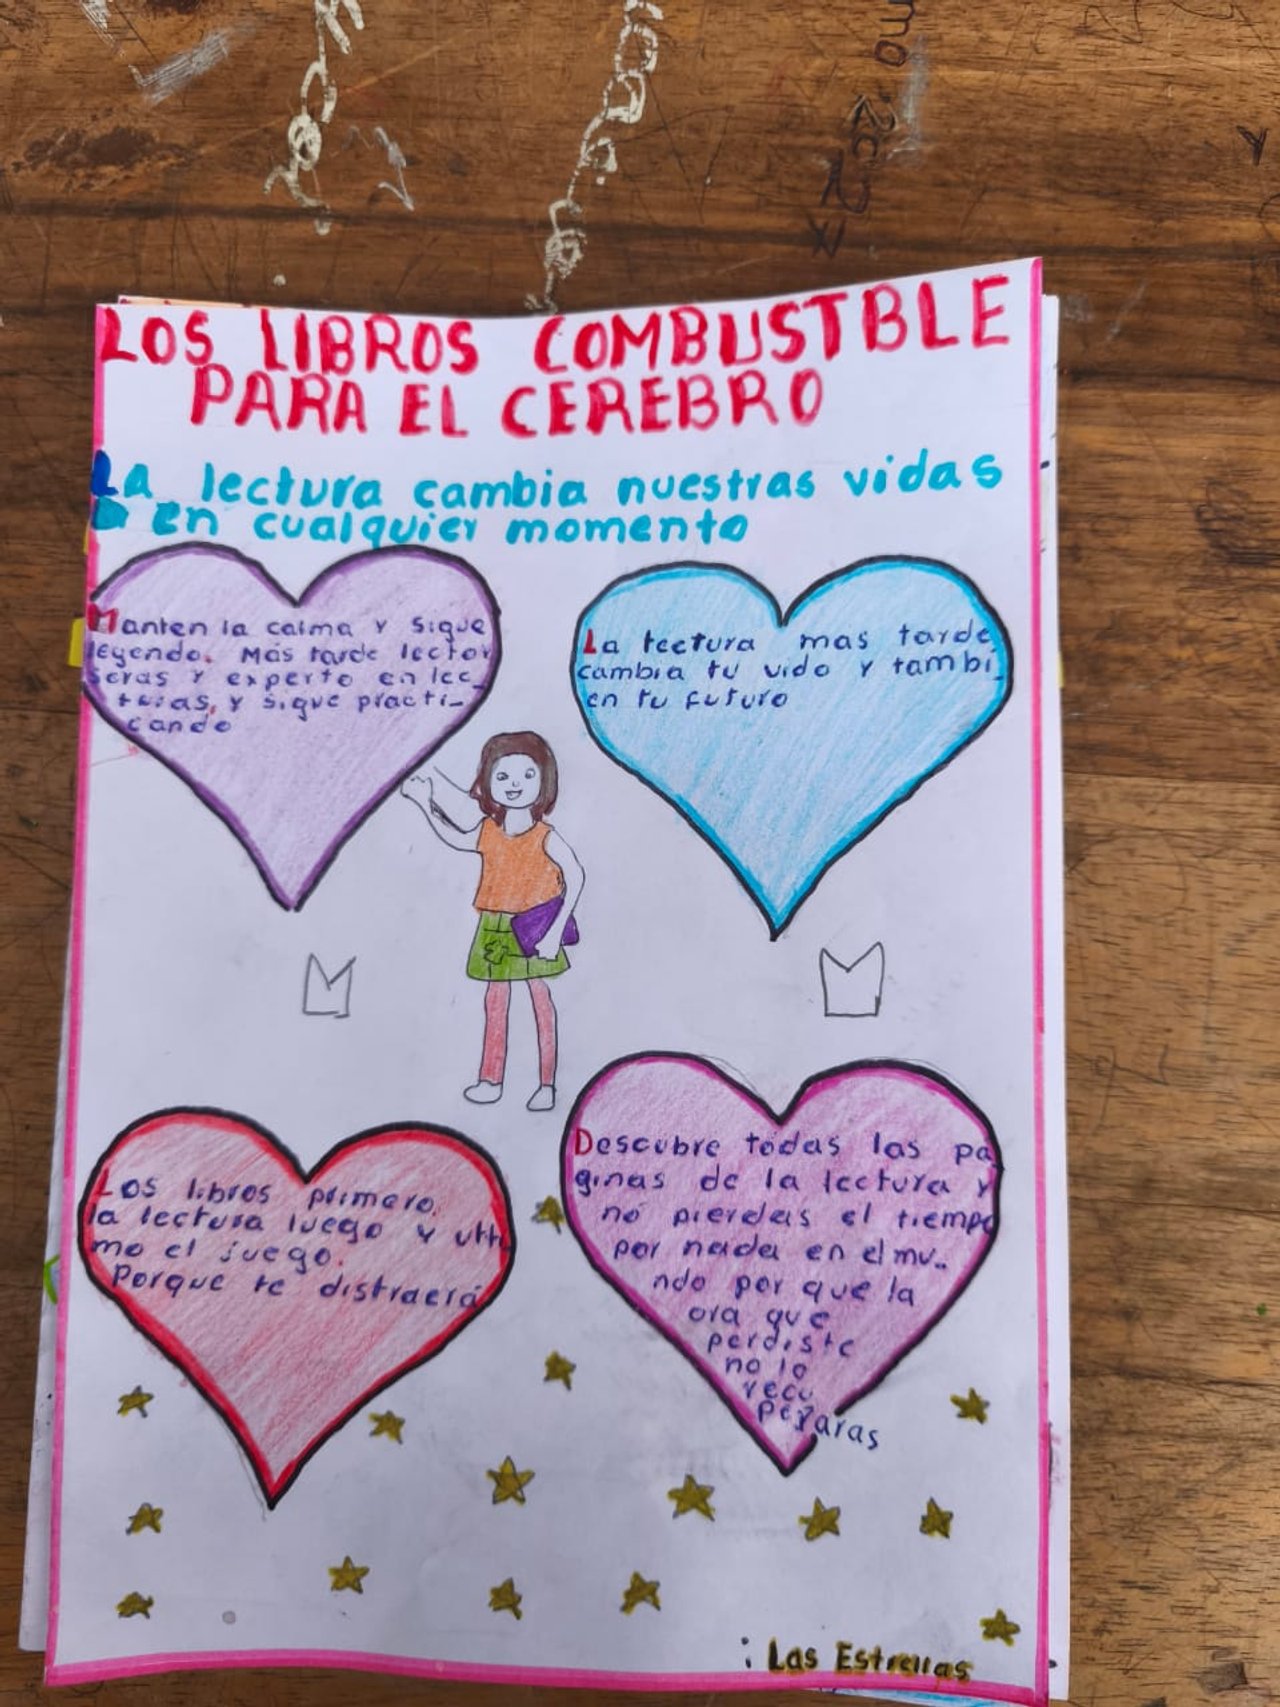 LOS LIBROS COMBUSTBLE
PARA EL CEREBRO
LA lectura cambia nuestras vidas
en cualquier momento
Manten la calma y sigue
leyendo. Mas tarde lector
seras y experto en lec_
turas, y sigue practi_
cando
La lectura mas tarde
cambia tu vido y tambi_
en tu futuro
Los libros primero,
la lectura luego y ulti
mo el juego.
Porque te distraerá
Descubre todas las pa
ginas de la lectura y
no pierdas el tiempo
por nada en el mu..
ndo por que la
ora que
perdiste
no lo
recu
peraras
¡ Las Estrellas